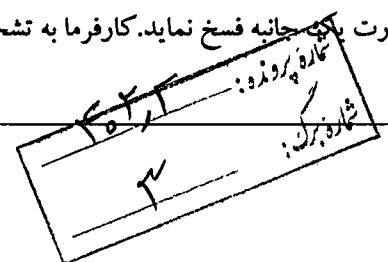 رت یک جانبه فسخ نماید.کارفرما به تشخ
شماره پرونده:
شماره برگ: ۳